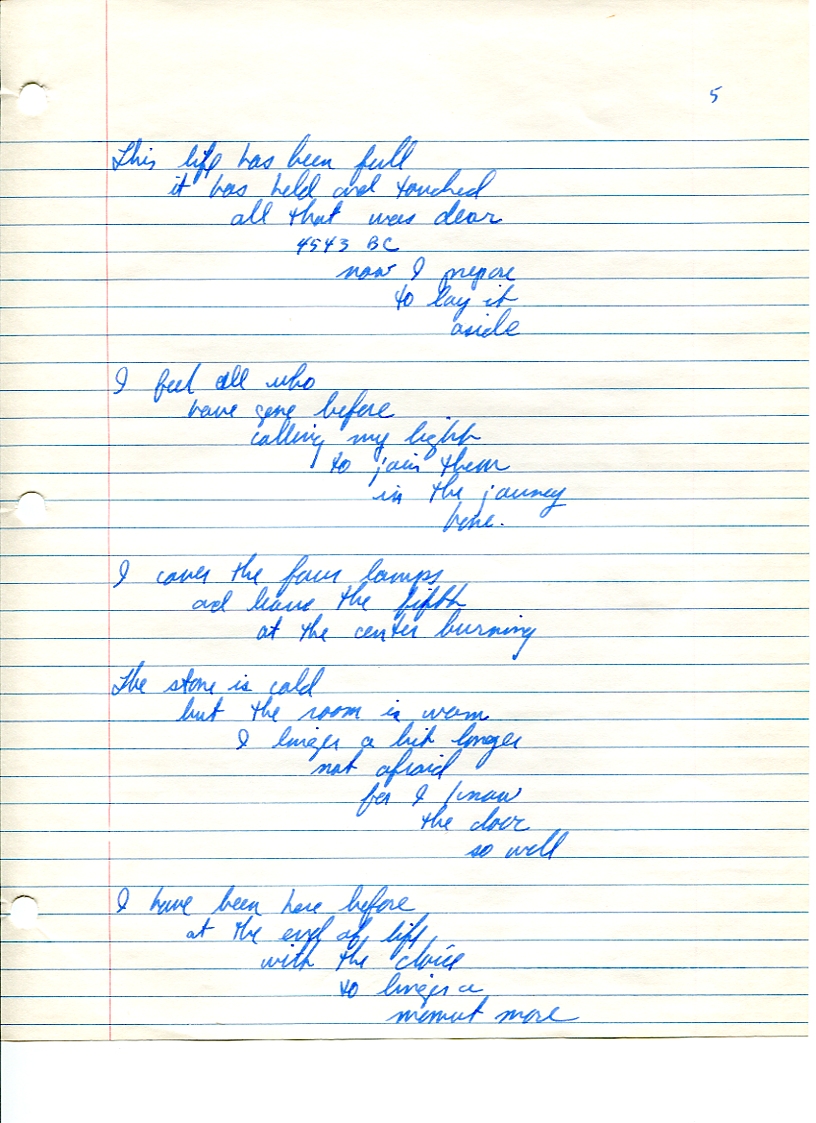 5
This life has been full
it has held and touched
all that was dear
4543 BC
now I prepare
to lay it
aside
I feel all who
have gone before
calling my light
to join them
in the journey
home.
I cover the four lamps
and leave the fifth
at the center burning
The stone is cold
but the room is warm
I linger a bit longer
not afraid
for I know
the door
so well
I have been here before
at the end of life,
with the choice
to linger a
moment more